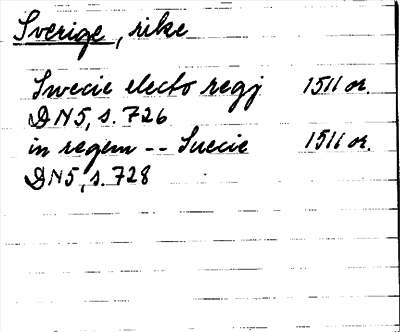 Sverige, rike
Swecie electo regj 1511 or.
DN5, s. 726
in regem -- Suecie 1511 or.
DN5, s. 728